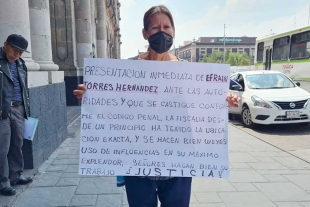 PRESENTACION INMEDIATA DE EFRAIN
TORRES HERNANDEZ ANTE LAS AUTO
RIDADES Y QUE SE CASTIGUE CONFOR
ME EL CODIGO PENAL, LA FISCALIA DES-
DE UN PRINCIPIO HA TENIDO LA UBICA
CION EXACTA, Y SE HACEN BIEN WEYES
USO DE INFLUENCIAS EN SU MÁXIMO
EXPLENDOR, SEÑORES HAGAN BIEN SU
TRABAJO ¡JUSTICIA!